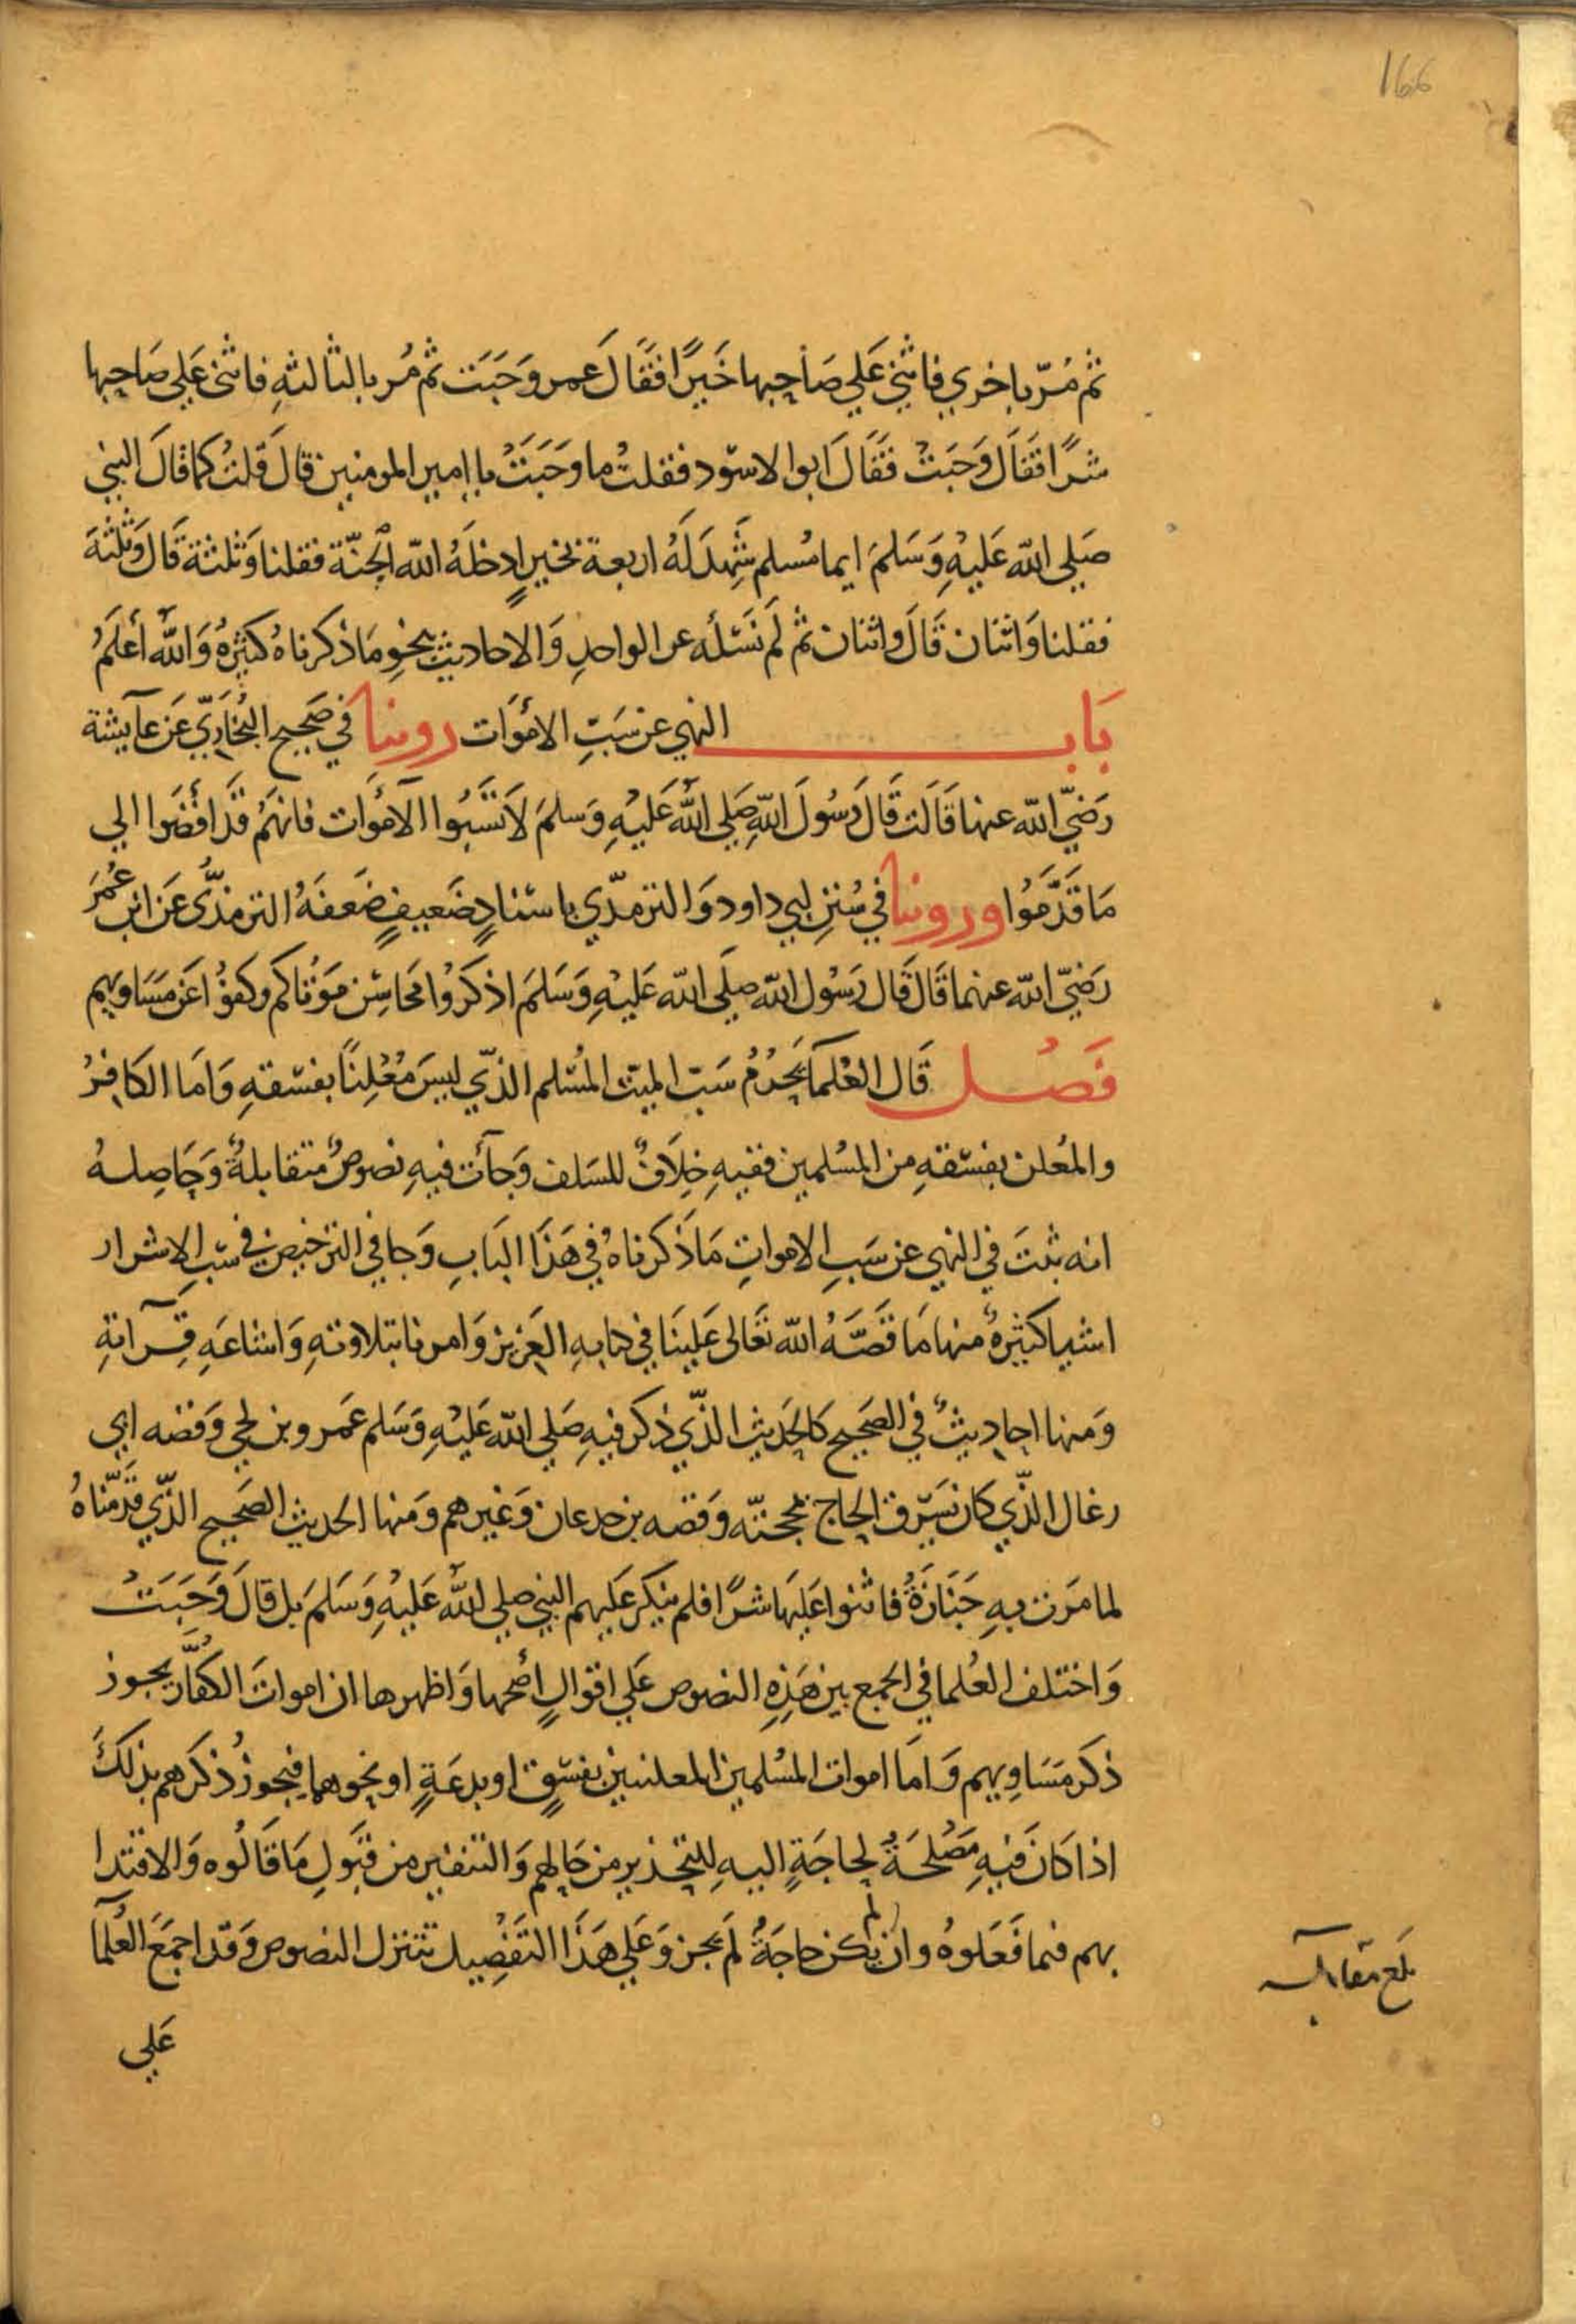 166
ثم مُرّ باخري فاثني عَلي صَاحِبها خَيرًا فقَالَ عمر وَجَبَت ثم مُر بالثالثةِ فاثني عَلي صَاحِبها
شرًا فَقَالَ وَجَبَتْ فَقَالَ ابوالاسوَد فقلتُ ما وَجَبَتْ ياامير المومنين قالَ قلتُ كما قالَ النبي
صَلي الله عَليهِ وَسَلمَ ايما مُسلم شَهِدَ لَهُ اربعة بخيرٍ ادخلهُ الله الجنّة فقلنا وَثلثة قَالَ وَثلثة
فقلنا وَاثنان قَالَ واثنان ثم لَم نَسَئله عن الواحدِ وَالاحاديث بنحوِ مَا ذكرناهُ كثيرَةٌ وَاللهُ أعلمُ
بَاب النهي عن سَبِّ الأموَات روينا في صَحِيح البُخاريّ عَن عآيشة
رَضيَ الله عنها قَالَت قَالَ رَسُولَ اللهِ صَلي اللهُ عَليهِ وَسلمَ لاَ تَسُبُّوا الأموَات فانهَمُ قدَ افْضَوا الي
مَا قَدَّمَوُا وروينا في سُنَنِ ابي داود وَالترمذّي باسنادٍ ضَعيفٍ ضَعفَهُ الترمذّي عَن ابن عُمَرَ
رَضيَ الله عنهما قَالَ قَال رَسُول الله صلَي الله عَليهِ وَسَلمَ اذكرُوا مَحَاسِن مَوْتاكم وكفوُا عَن مسَاويهم
فَصْل قَال العُلمآ يَحرُمُ سَبّ الميّت المُسْلم الذّي ليسَ مُعْلِنًا بفسقهِ وَامَا الكَافِرُ
والمُعلن بفسقهِ من المسُلمين ففيهِ خِلاَفٌ للسَلف وَجآت فيهِ نصوصٌ متقابلةٌ وَحَاصِلهُ
انه ثبتَ في النهي عن سَبِ الامواتِ مَا ذَكرناهُ في هَذَا البَابِ وَجا في الترخيص في سَبّ الاشرار
اشيا كثيرةٌ منها مَا قَصَّهُ الله تعَالى عَلينَا في كتابهِ العَزيز وَامرنا بتلاوتهِ وَاشاعَهِ قِرآتهِ
وَمنها احاديثٌ في الصَحيح كالحَديث الذّي ذكر فيهِ صَلي الله عَليهِ وَسَلم عَمرو بن لحي وَقصه ابي
رغال الذّي كان يَسرق الحاج بمحجنه وَقصه بن جدعان وَغيرهم وَمنها الحديث الصَحيح الذّي قدَّمّناهُ
لما مَرت بهِ جَنَازةٌ فاثنوا عَليهَا شرًا فلم ينكر عَليهم النبي صلي اللهُ عَليهِ وَسَلمَ بل قالَ وَجَبَتْ
وَاختلف العُلما في الجمع بين هَذِهِ النصوص عَلي اقوالٍ أصَحها وَاظهرها ان امواتَ الكفّار يجوز
ذكر مَسَاوِيهم وَامَا اموات المسُلمين المعلنين بفسقٍ او بدعَةٍ او نحوهما فيجوز ذكرهم بذلكَ
اذا كاَن فيهِ مَصْلحَةٌ لحاجَةٍ اليهِ للتحذير من حَالهم وَالتنفير من قبَولِ مَا قَالُوه وَالاقتدا
بهم فيما فَعَلوهُ وان لم يكن حاجَةٌ لَم يجز وَعَلي هَذَا التفْصِيل تتنزل النصوص وَقد اجمَعَ العُلمآ
بلغ مقابلة
عَلي